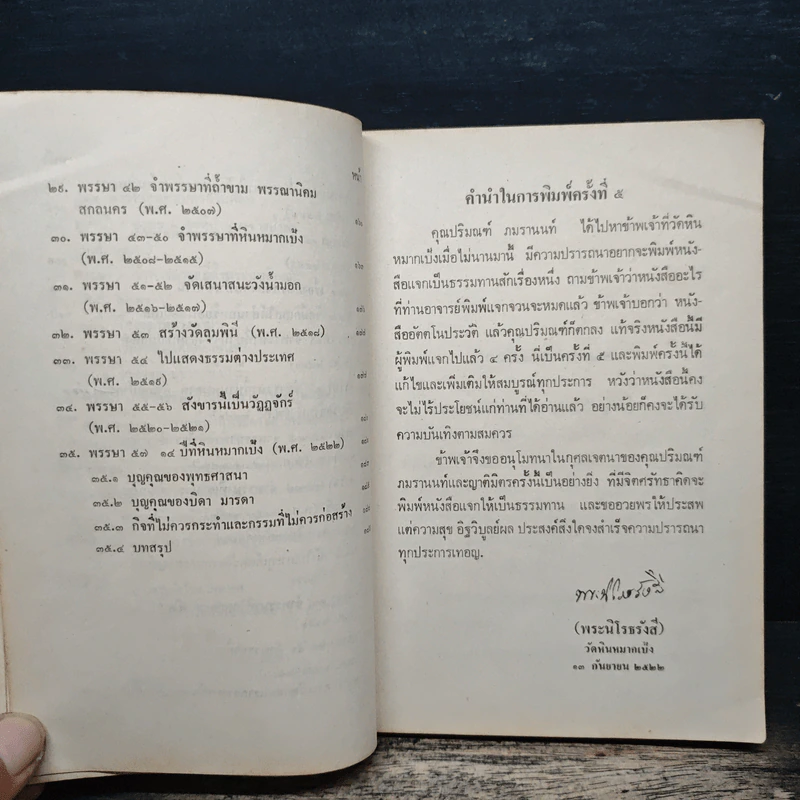 หน้า
๒๙. พรรษา ๔๒ จำพรรษาที่ถ้ำขาม พรรณานิคม
สกลนคร (พ.ศ. ๒๕๐๗)
๓๐. พรรษา ๔๓-๕๐ จำพรรษาที่หินหมากเป้ง
(พ.ศ. ๒๕๐๘-๒๕๑๕)
๓๑. พรรษา ๕๑-๕๒ จัดเสนาสนะวังน้ำมอก
(พ.ศ. ๒๕๑๖-๒๕๑๗)
๓๒. พรรษา ๕๓ สร้างวัดลุมพินี (พ.ศ. ๒๕๑๘)
๓๓. พรรษา ๕๔ ไปแสดงธรรมต่างประเทศ
(พ.ศ. ๒๕๑๙)
๓๔. พรรษา ๕๕-๕๖ สังขารนี้เป็นวัฏฏจักร์
(พ.ศ. ๒๕๒๐-๒๕๒๑)
๓๕. พรรษา ๕๗ ๑๔ ปีที่หินหมากเป้ง (พ.ศ. ๒๕๒๒)
๓๕.๑ บุญคุณของพุทธศาสนา
๓๕.๒ บุญคุณของบิดา มารดา
๓๕.๓ กิจที่ไม่ควรกระทำและกรรมที่ไม่ควรก่อสร้าง
๓๕.๔ บทสรุป
คำนำในการพิมพ์ครั้งที่ ๕
คุณปริมณฑ์ ภมรานนท์ ได้ไปหาข้าพเจ้าที่วัดหิน
หมากเป้งเมื่อไม่นานมานี้ มีความปรารถนาอยากจะพิมพ์หนัง-
สือแจกเป็นธรรมทานสักเรื่องหนึ่ง ถามข้าพเจ้าว่าหนังสืออะไร
ที่ท่านอาจารย์พิมพ์แจกจวนจะหมดแล้ว ข้าพเจ้าบอกว่า หนัง-
สืออัตตโนประวัติ แล้วคุณปริมณฑ์ก็ตกลง แท้จริงหนังสือนี้มี
ผู้พิมพ์แจกไปแล้ว ๔ ครั้ง นี่เป็นครั้งที่ ๕ และพิมพ์ครั้งนี้ได้
แก้ไขและเพิ่มเติมให้สมบูรณ์ทุกประการ หวังว่าหนังสือนี้คง
จะไม่ไร้ประโยชน์แก่ท่านที่ได้อ่านแล้ว อย่างน้อยก็คงจะได้รับ
ความบันเทิงตามสมควร
ข้าพเจ้าจึงขออนุโมทนาในกุศลเจตนาของคุณปริมณฑ์
ภมรานนท์และญาติมิตรครั้งนี้เป็นอย่างยิ่ง ที่มีจิตศรัทธาคิดจะ
พิมพ์หนังสือแจกให้เป็นธรรมทาน และขออวยพรให้ประสพ
แต่ความสุข อิฐวิบูลย์ผล ประสงค์สิ่งใดจงสำเร็จความปรารถนา
ทุกประการเทอญ.
(พระนิโรธรังสี)
วัดหินหมากเป้ง
๑๓ กันยายน ๒๕๒๒